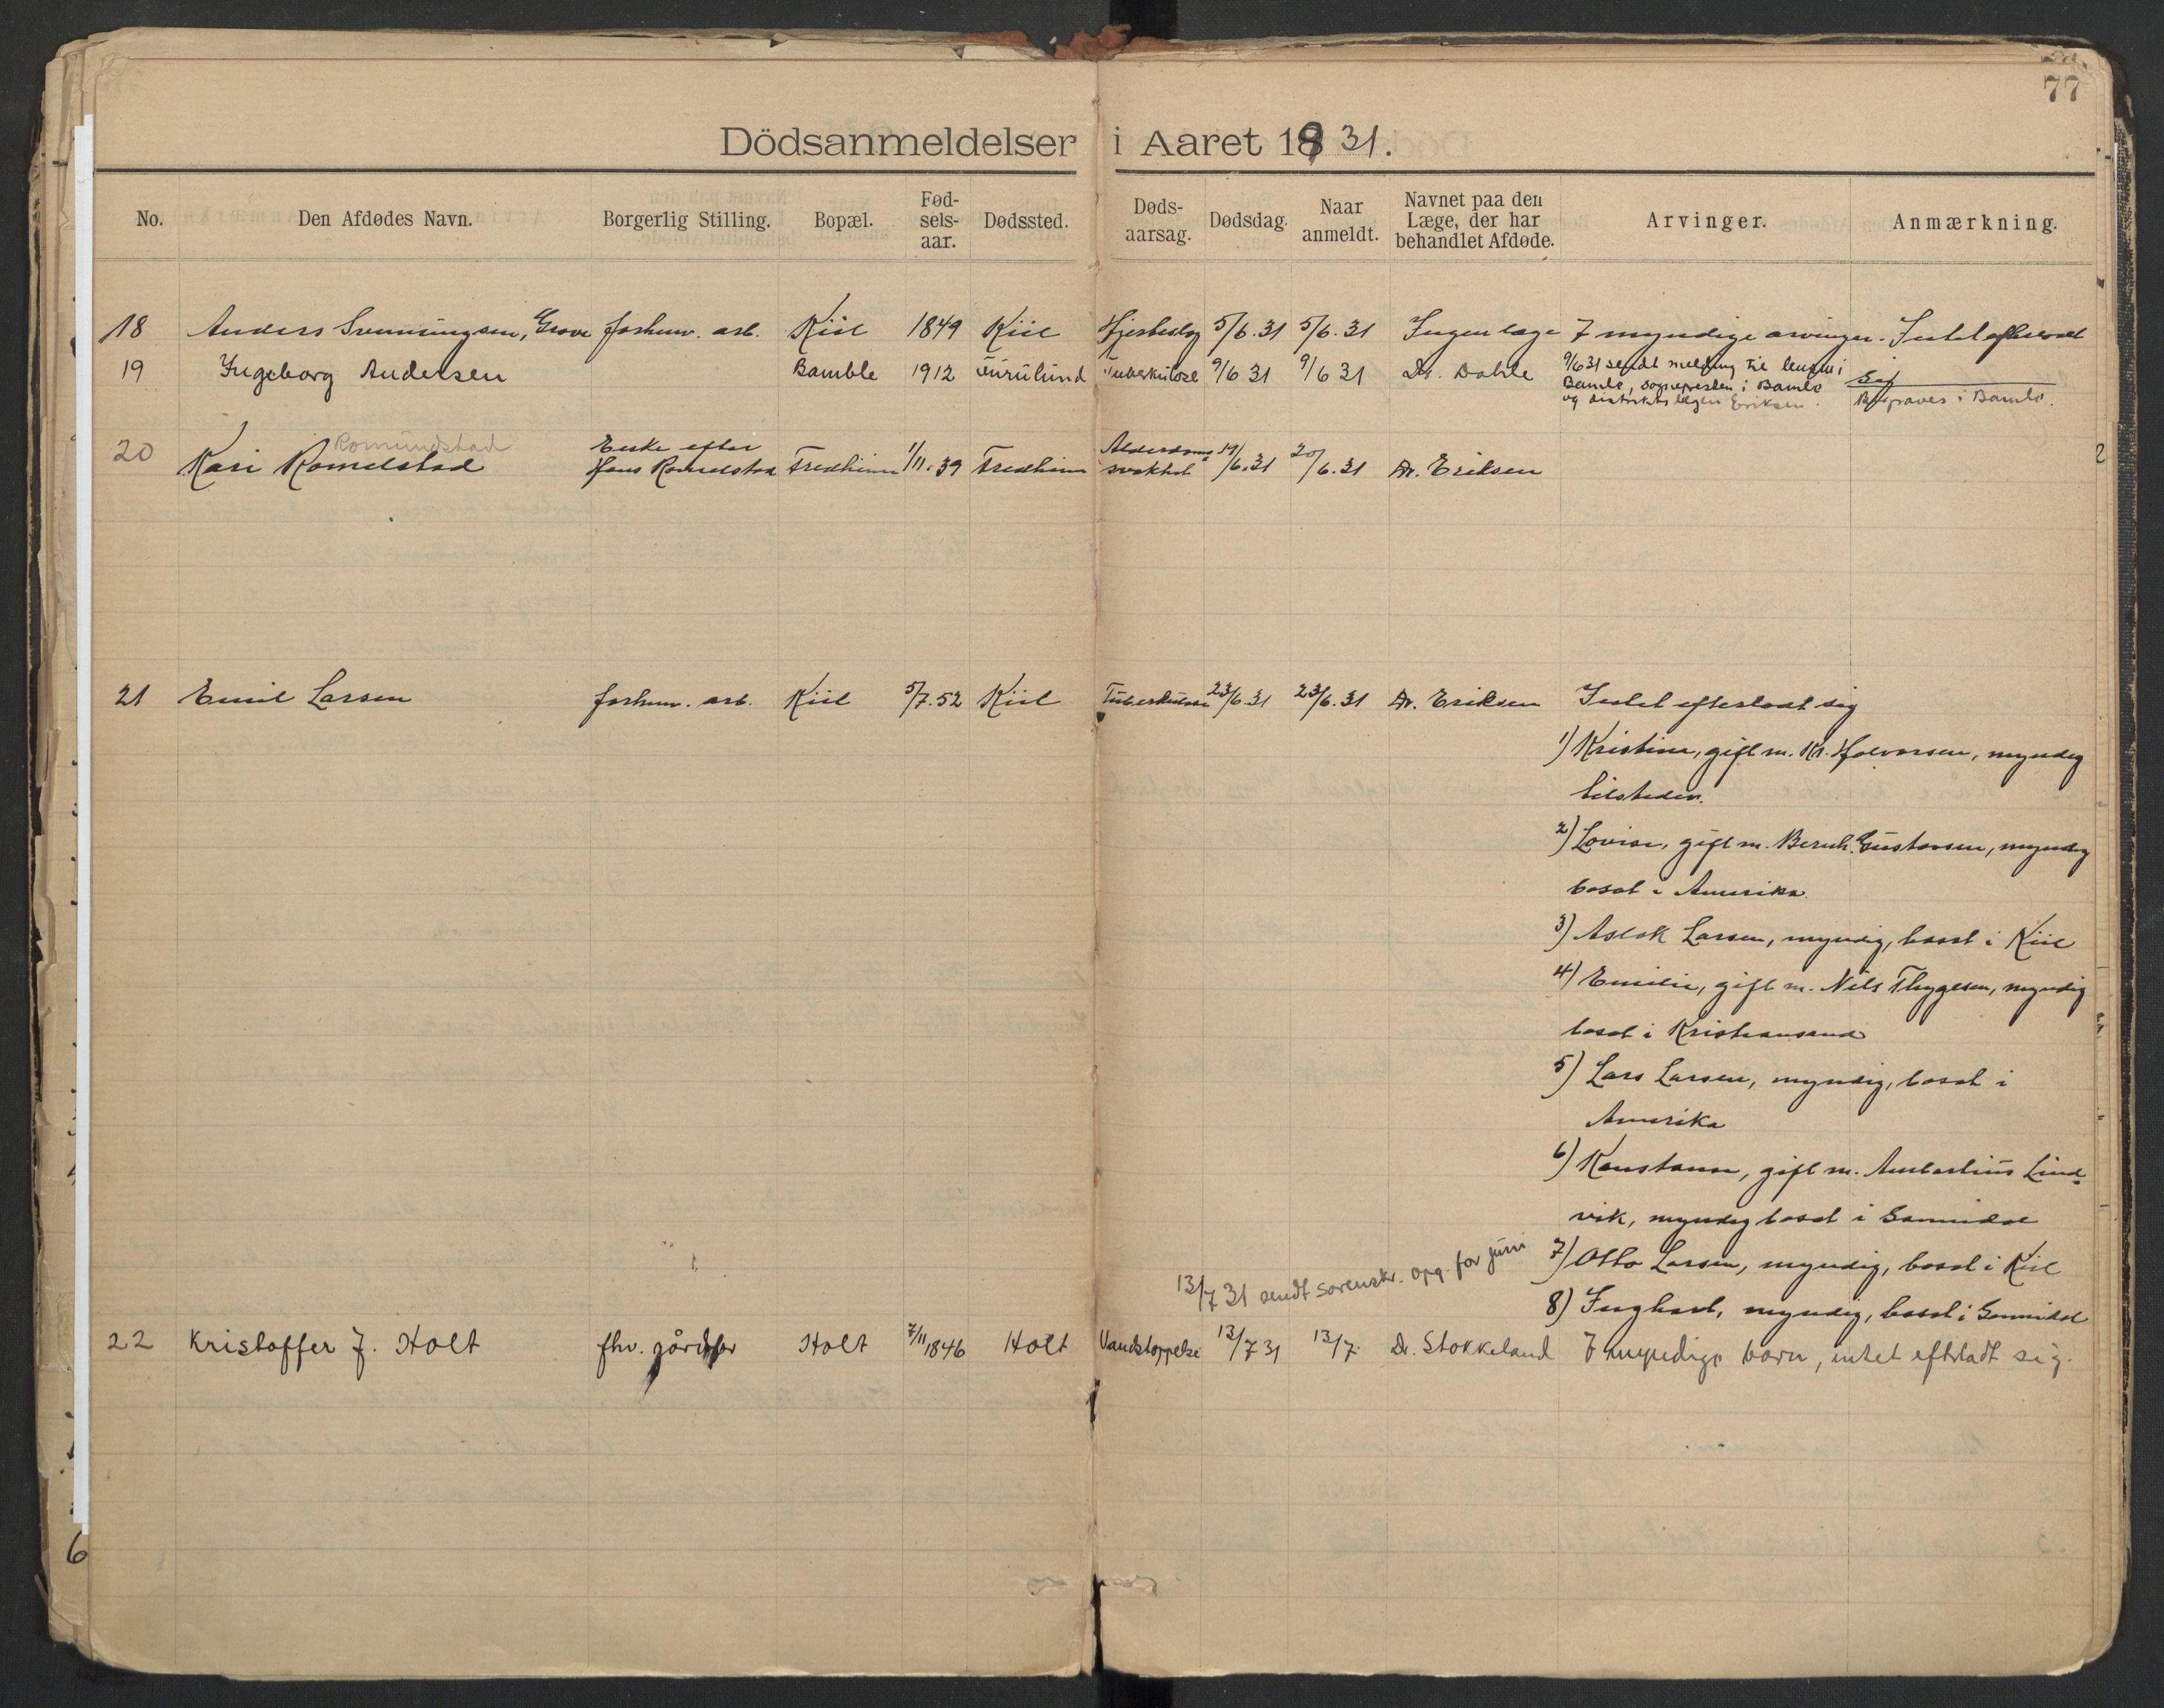 77
Dödsanmeldelser i Aaret 1931.
No. Den Afdødes Navn. Borgerlig Stilling. Bopæl. Fødselsaar. Dødssted. Dødsaarsag. Dødsdag. Naar anmeldt. Navnet paa den Læge, der har behandlet Afdøde. Arvinger. Anmærkning.
18 Anders Svenningsen, Grove forhenv. arb. Kiil 1849 Kiil Hjerteslag 5/6.31 5/6.31 Ingen læge 7 myndige arvinger. Intet efterladt
19 Ingeborg Andersen Bamble 1912 Furulund Tuberkulose 9/6 31 9/6 31 Dr. Dahle 9/6 31 sendt melding til lensm i sig
Bamle, sognepresten i Bamle Begraves i Bamle.
og distriktslegen Eriksen.
Romundstad
20 Kari Romelstad Enke efter Hans Romelstad Fredheim 1/11.39 Fredheim Alderdoms svakhet 19/6.31 20/6.31 Dr. Eriksen
21 Emil Larsen forhenv. arb. Kiil 5/7.52 Kiil Tuberkulose 23/6.31 23/6.31 Dr. Eriksen Intet efterladt sig
1) Kristine, gift m. Kr. Halvorsen, myndig
tilsteder.
2) Lovise, gift m. Bernh. Gustavsen, myndig
bosat i Amerika.
3) Aslak Larsen, myndig, bosat i Kiil
4) Emilie, gift m. Nils Thygesen, myndig
bosat i Kristiansand
5) Lars Larsen, myndig, bosat i
Amerika
6) Konstanse, gift m. Lind-
vik, myndig bosat i Sannidal
13/7 31 sendt sorenskr. opg. for juni
7) Otto Larsen, myndig, bosat i Kiil
8) myndig, bosat i Sannidal
22 Kristoffer J. Holt fhv. Holt 7/11 1846 Holt Vandstoppelse 13/7 31 13/7. Dr. Stokkeland 7 myndige barn, intet efterladt sig.
6